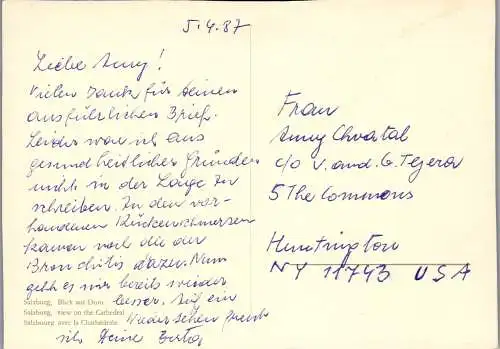 5.4.87
Liebe Amy!
Vielen Dank für Deinen
ausführlichen Brief.
Leider war ich aus
gesundheitlichen Gründen
nicht in der Lage zu
schreiben. Zu den vor-
handenen Rückenschmerzen
kamen noch die der
Bronchitis dazu. Nun
geht es mir bereits wieder
besser. Auf ein
Wiedersehen freut
sich Deine
Frau
Amy Chvatal
c/o V. and G. Tejera
5 The Commons
Huntington
NY 11743 USA
Salzburg, Blick auf Dom
Salzburg, view on the Cathedral
Salzbourg avec la Cathédrale